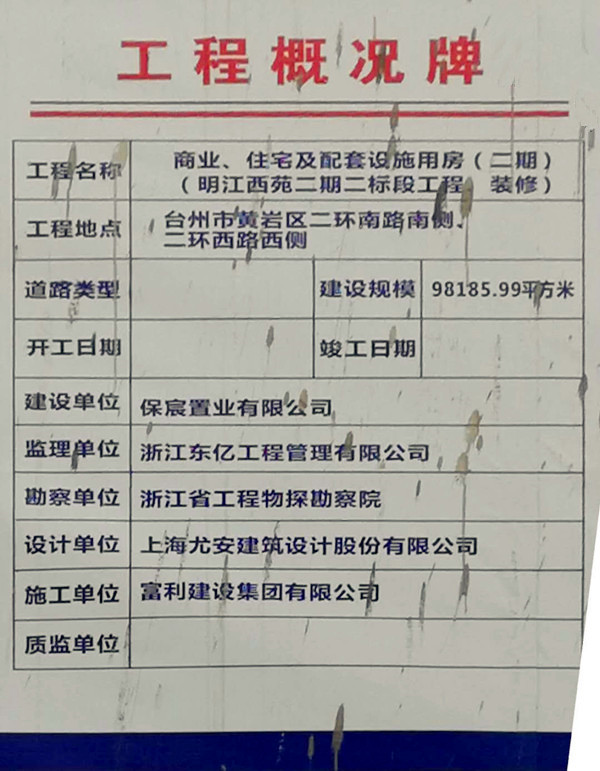 工程概况牌
工程名称 商业、住宅及配套设施用房（二期）
（明江西苑二期二标段工程 装修）
工程地点 台州市黄岩区二环南路南侧、
二环西路西侧
道路类型 建设规模 98185.99平方米
开工日期 竣工日期
建设单位 保宸置业有限公司
监理单位 浙江东亿工程管理有限公司
勘察单位 浙江省工程物探勘察院
设计单位 上海尤安建筑设计股份有限公司
施工单位 富利建设集团有限公司
质监单位